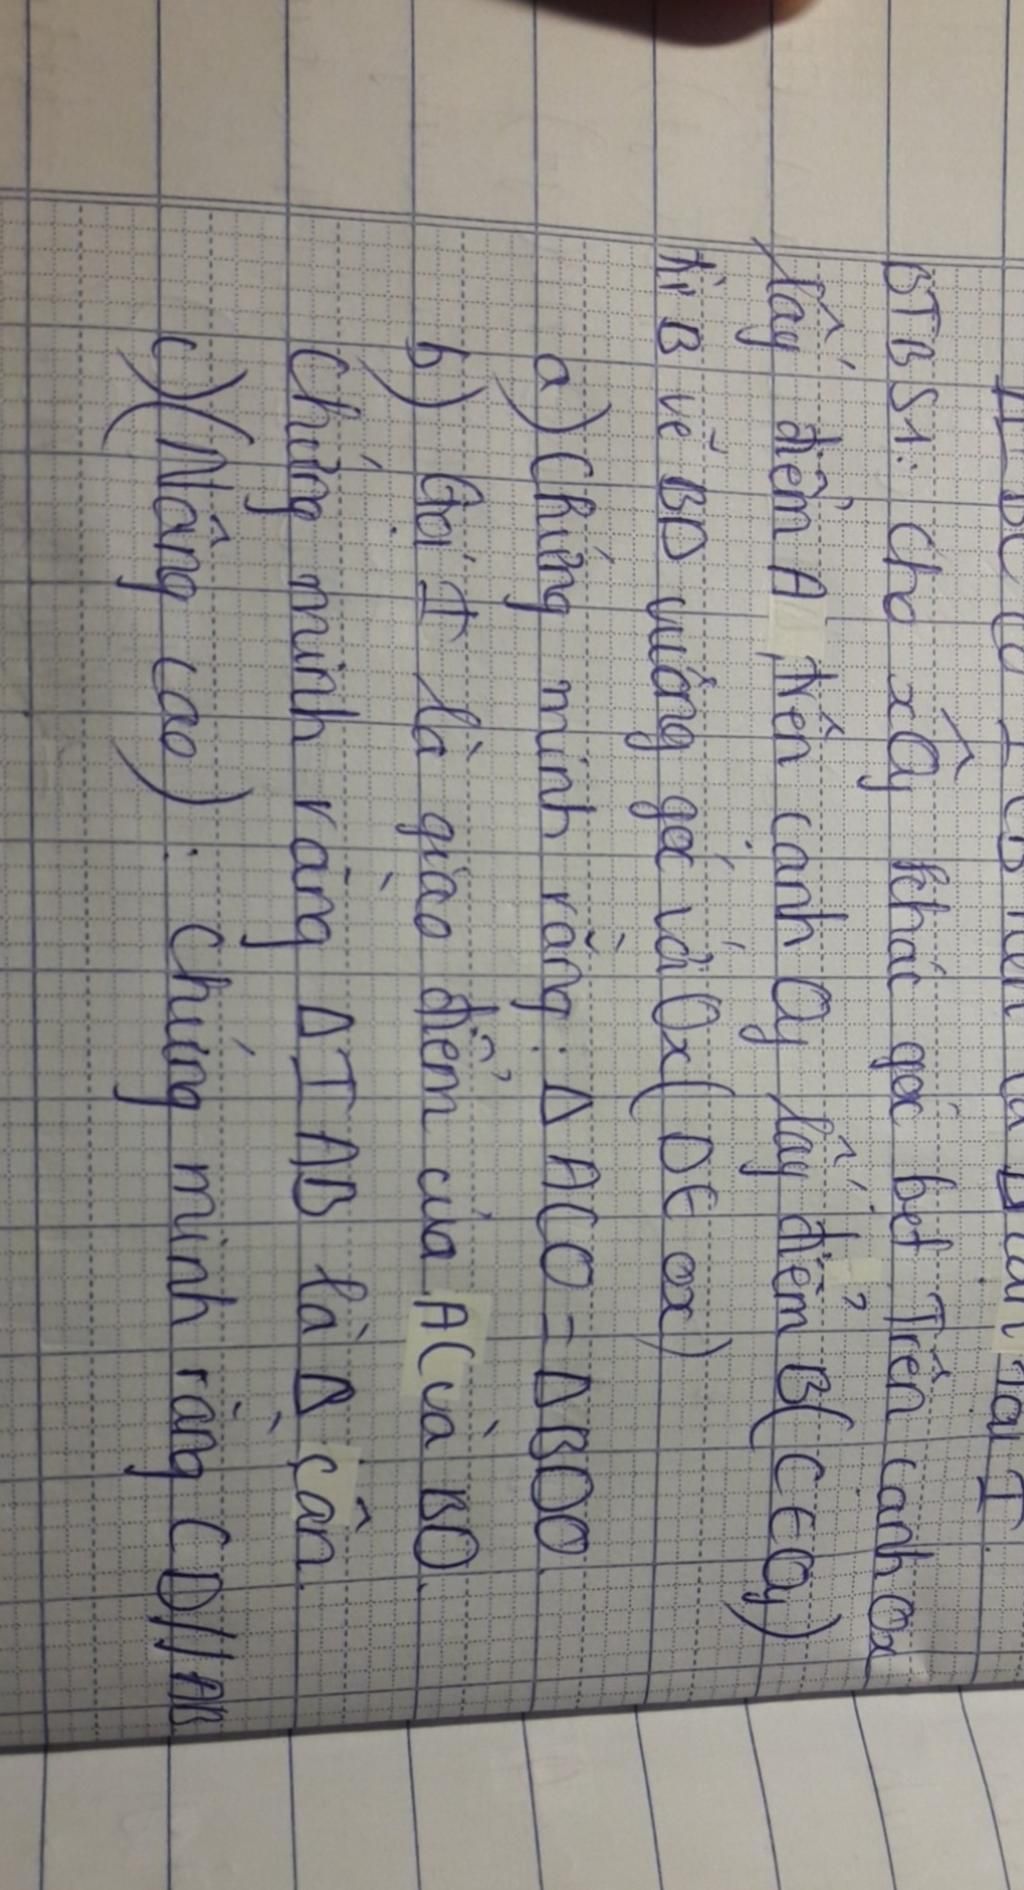 BTBS1: cho xOy khác góc bẹt Trên cạnh Ox
lấy điểm A, trên cạnh Oy lấy điểm B( C ∈ Oy)
từ B vẽ BD vuông góc với Ox( D ∈ ox)
a) Chứng minh rằng: Δ ACO = Δ BDO
b) Gọi I là giao điểm của AC và BD.
Chứng minh rằng Δ I AB là Δ cân.
c) (Nâng cao): Chứng minh rằng CD//AB